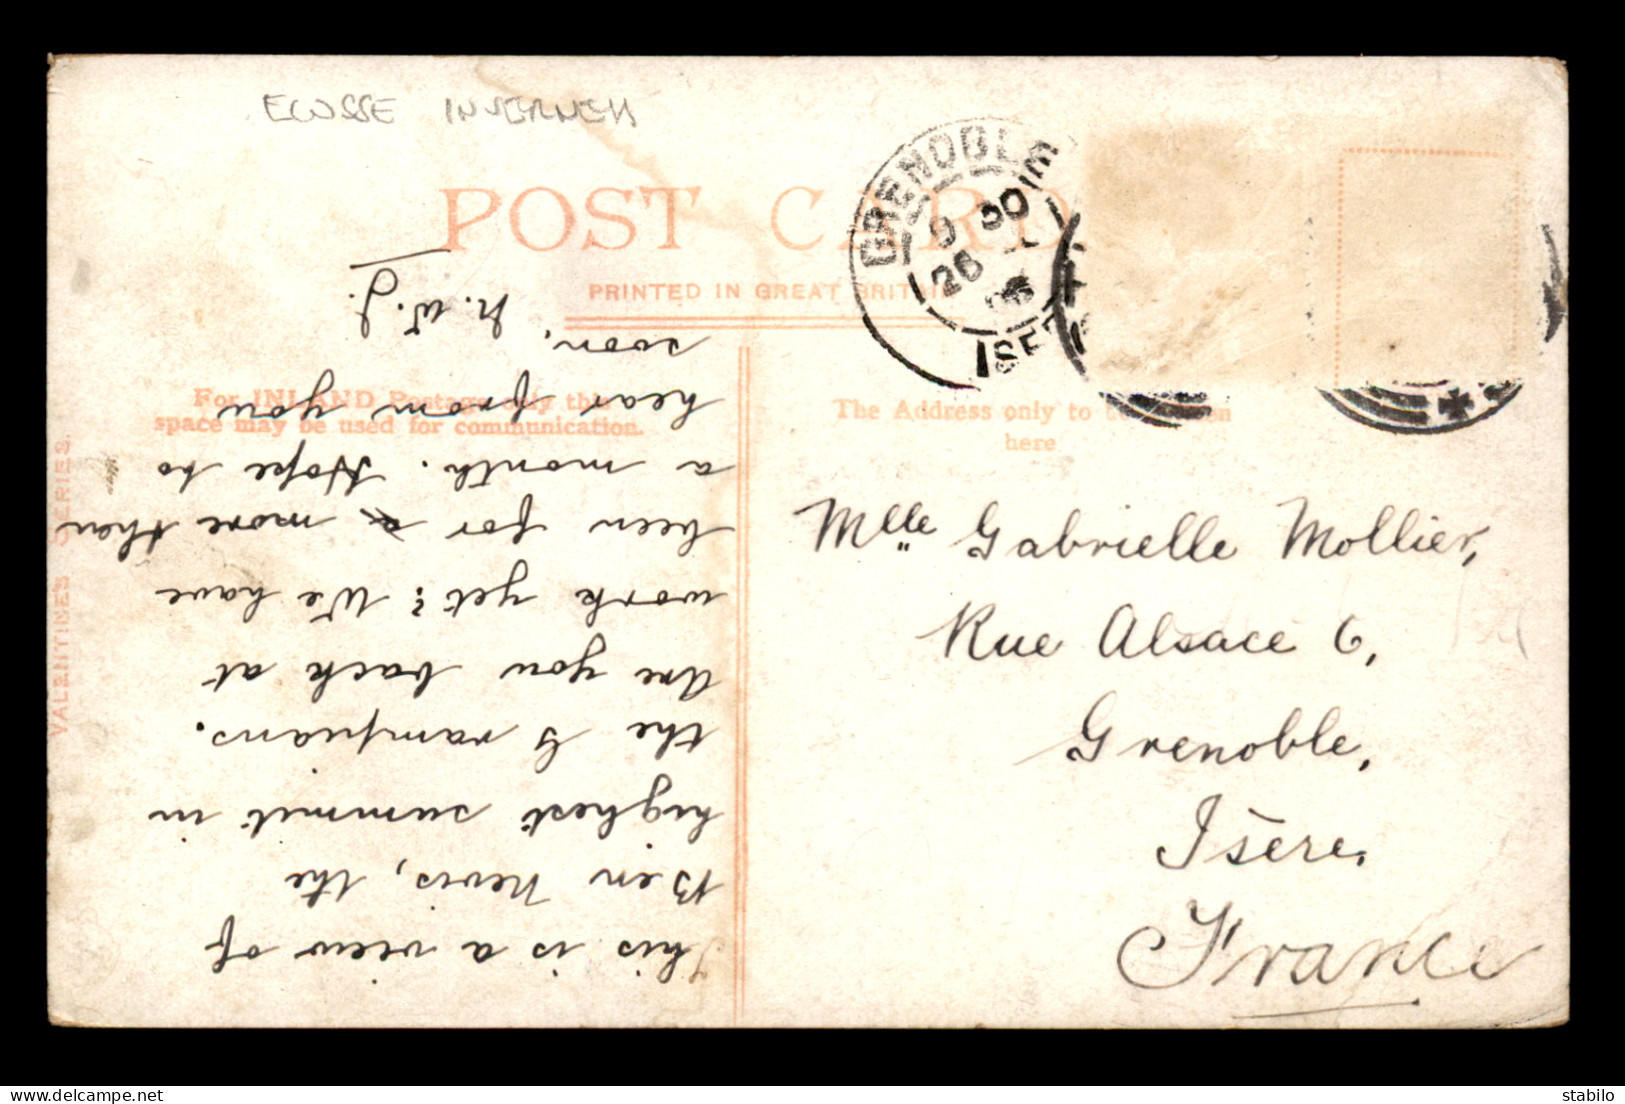 ECOSSE INVERNESS
POST CARD
PRINTED IN GREAT BRITAIN
For INLAND Postage only this
space may be used for communication.
The Address only to be
here
VALENTINES SERIES.
GRENOBLE
9 30
26
ISERE
This is a view of
Ben Nevis, the
highest summit in
the Grampians.
Are you back at
work yet? We have
been for a more than
a month. Hope to
hear from you
soon.
N. W. J.
Mlle Gabrielle Mollier,
Rue Alsace 6,
Grenoble,
Isère.
France
stabilo